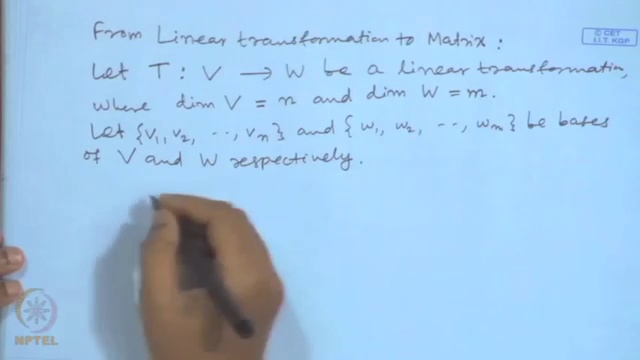 © CET
I.I.T. KGP
From Linear transformation to Matrix :
Let T : V → W be a linear transformation,
where dim V = n and dim W = m.
Let {v1, v2, ..., vn} and {w1, w2, ..., wm} be bases
of V and W respectively.
NPTEL